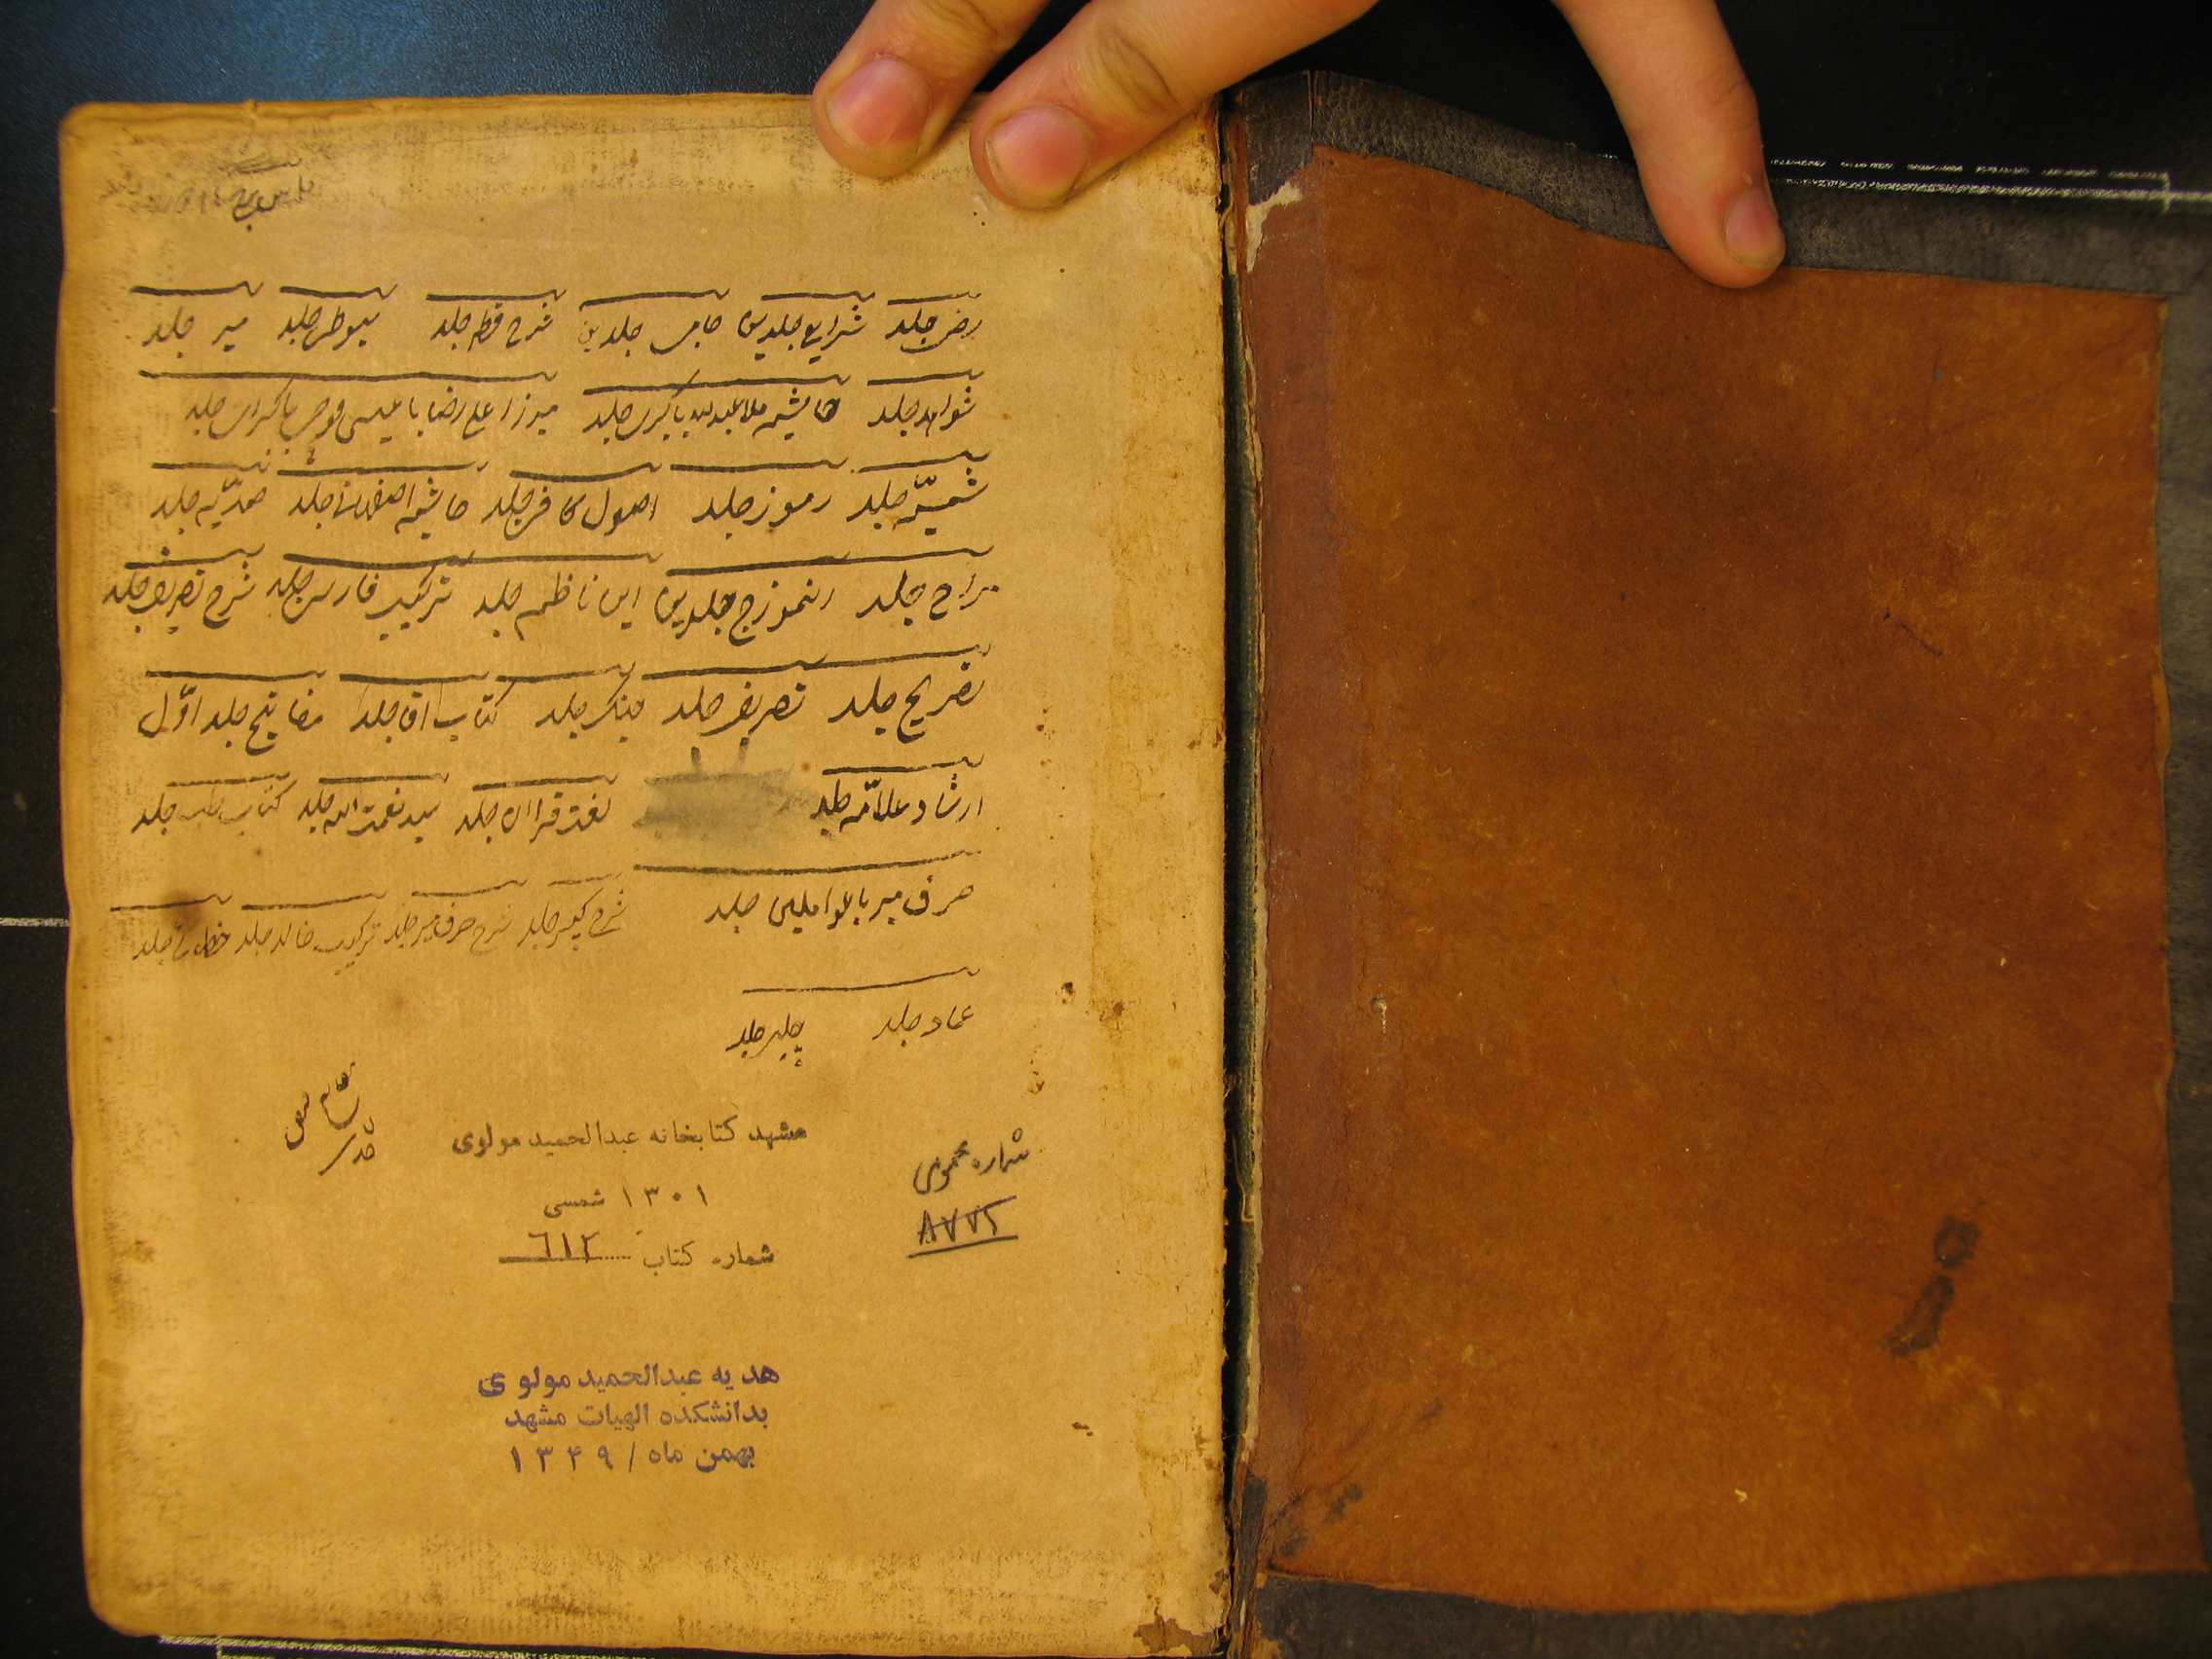 رضی جلد شرایع جلدین جامی جلدین شرح قطر جلد سیوطی جلد میر جلد
شواهد جلد حاشیه ملا عبدالله با کبری جلد میرزا علی رضا با عیسی جلد
شمسیّه جلد رموز جلد اصول کافی جلد حاشیه اصفهانی جلد صمدیّه جلد
مراح جلد انموزج جلدین ابن ناظم جلد ترکیب فارسی جلد شرح تصریف جلد
تصریح جلد تصریف جلد جلد کتاب جلد مفاتیح جلد اوّل
ارشاد علامّه جلد لغت قران جلد سید نعمت الله جلد کتاب طب جلد
صرف میر با عوامل جلد شرح کبیر جلد شرح صرف میر جلد ترکیب خالد جلد جلد
عماد جلد جلد
مشهد کتابخانه عبدالحمید مولوی
۱۳۰۱ شمسی
شماره کتاب ٦١٢
شماره عمومی
٨٧٧٢
هدیه عبدالحمید مولوی
بدانشکده الهیات مشهد
بهمن ماه / ۱۳۴۹